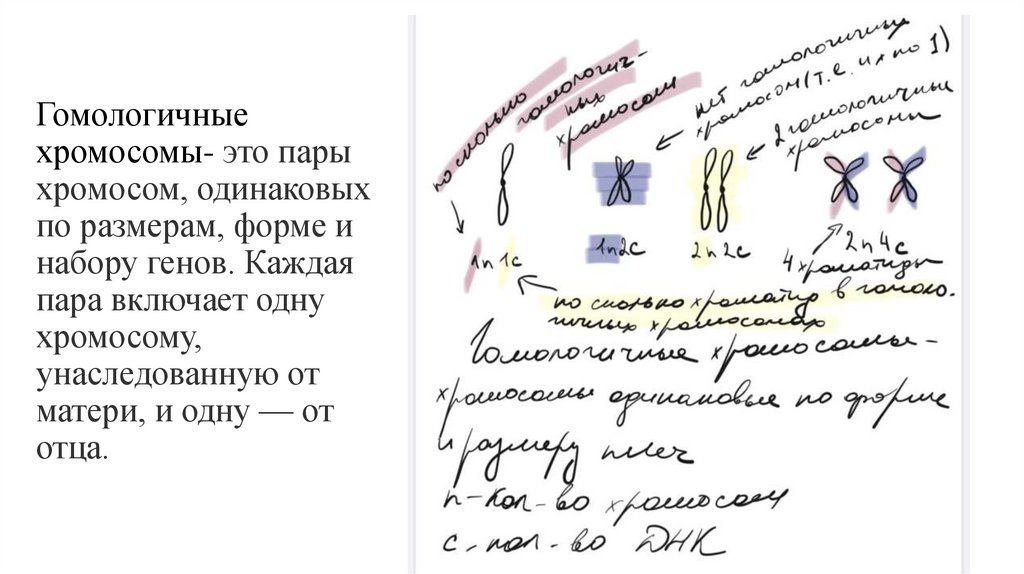 Гомологичные
хромосомы- это пары
хромосом, одинаковых
по размерам, форме и
набору генов. Каждая
пара включает одну
хромосому,
унаследованную от
матери, и одну — от
отца.
по сколько
гомологич-
ных
хромосом
нет гомологичных
хромосом (т.е. их по 1)
2 гомологичные
хромосомы
1n 1c
1n2c
2n 2c
2n4c
4 хроматиды
по сколько хроматид в гомоло-
гичных хромосомах
Гомологичные хромосомы-
хромосомы одинаковые по форме
и размеру плеч
n-кол-во хромосом
c-кол-во ДНК